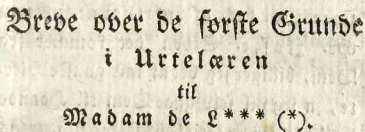 Breve over de første Grunde
i Urtelæren
til
Madam de L*** (*).